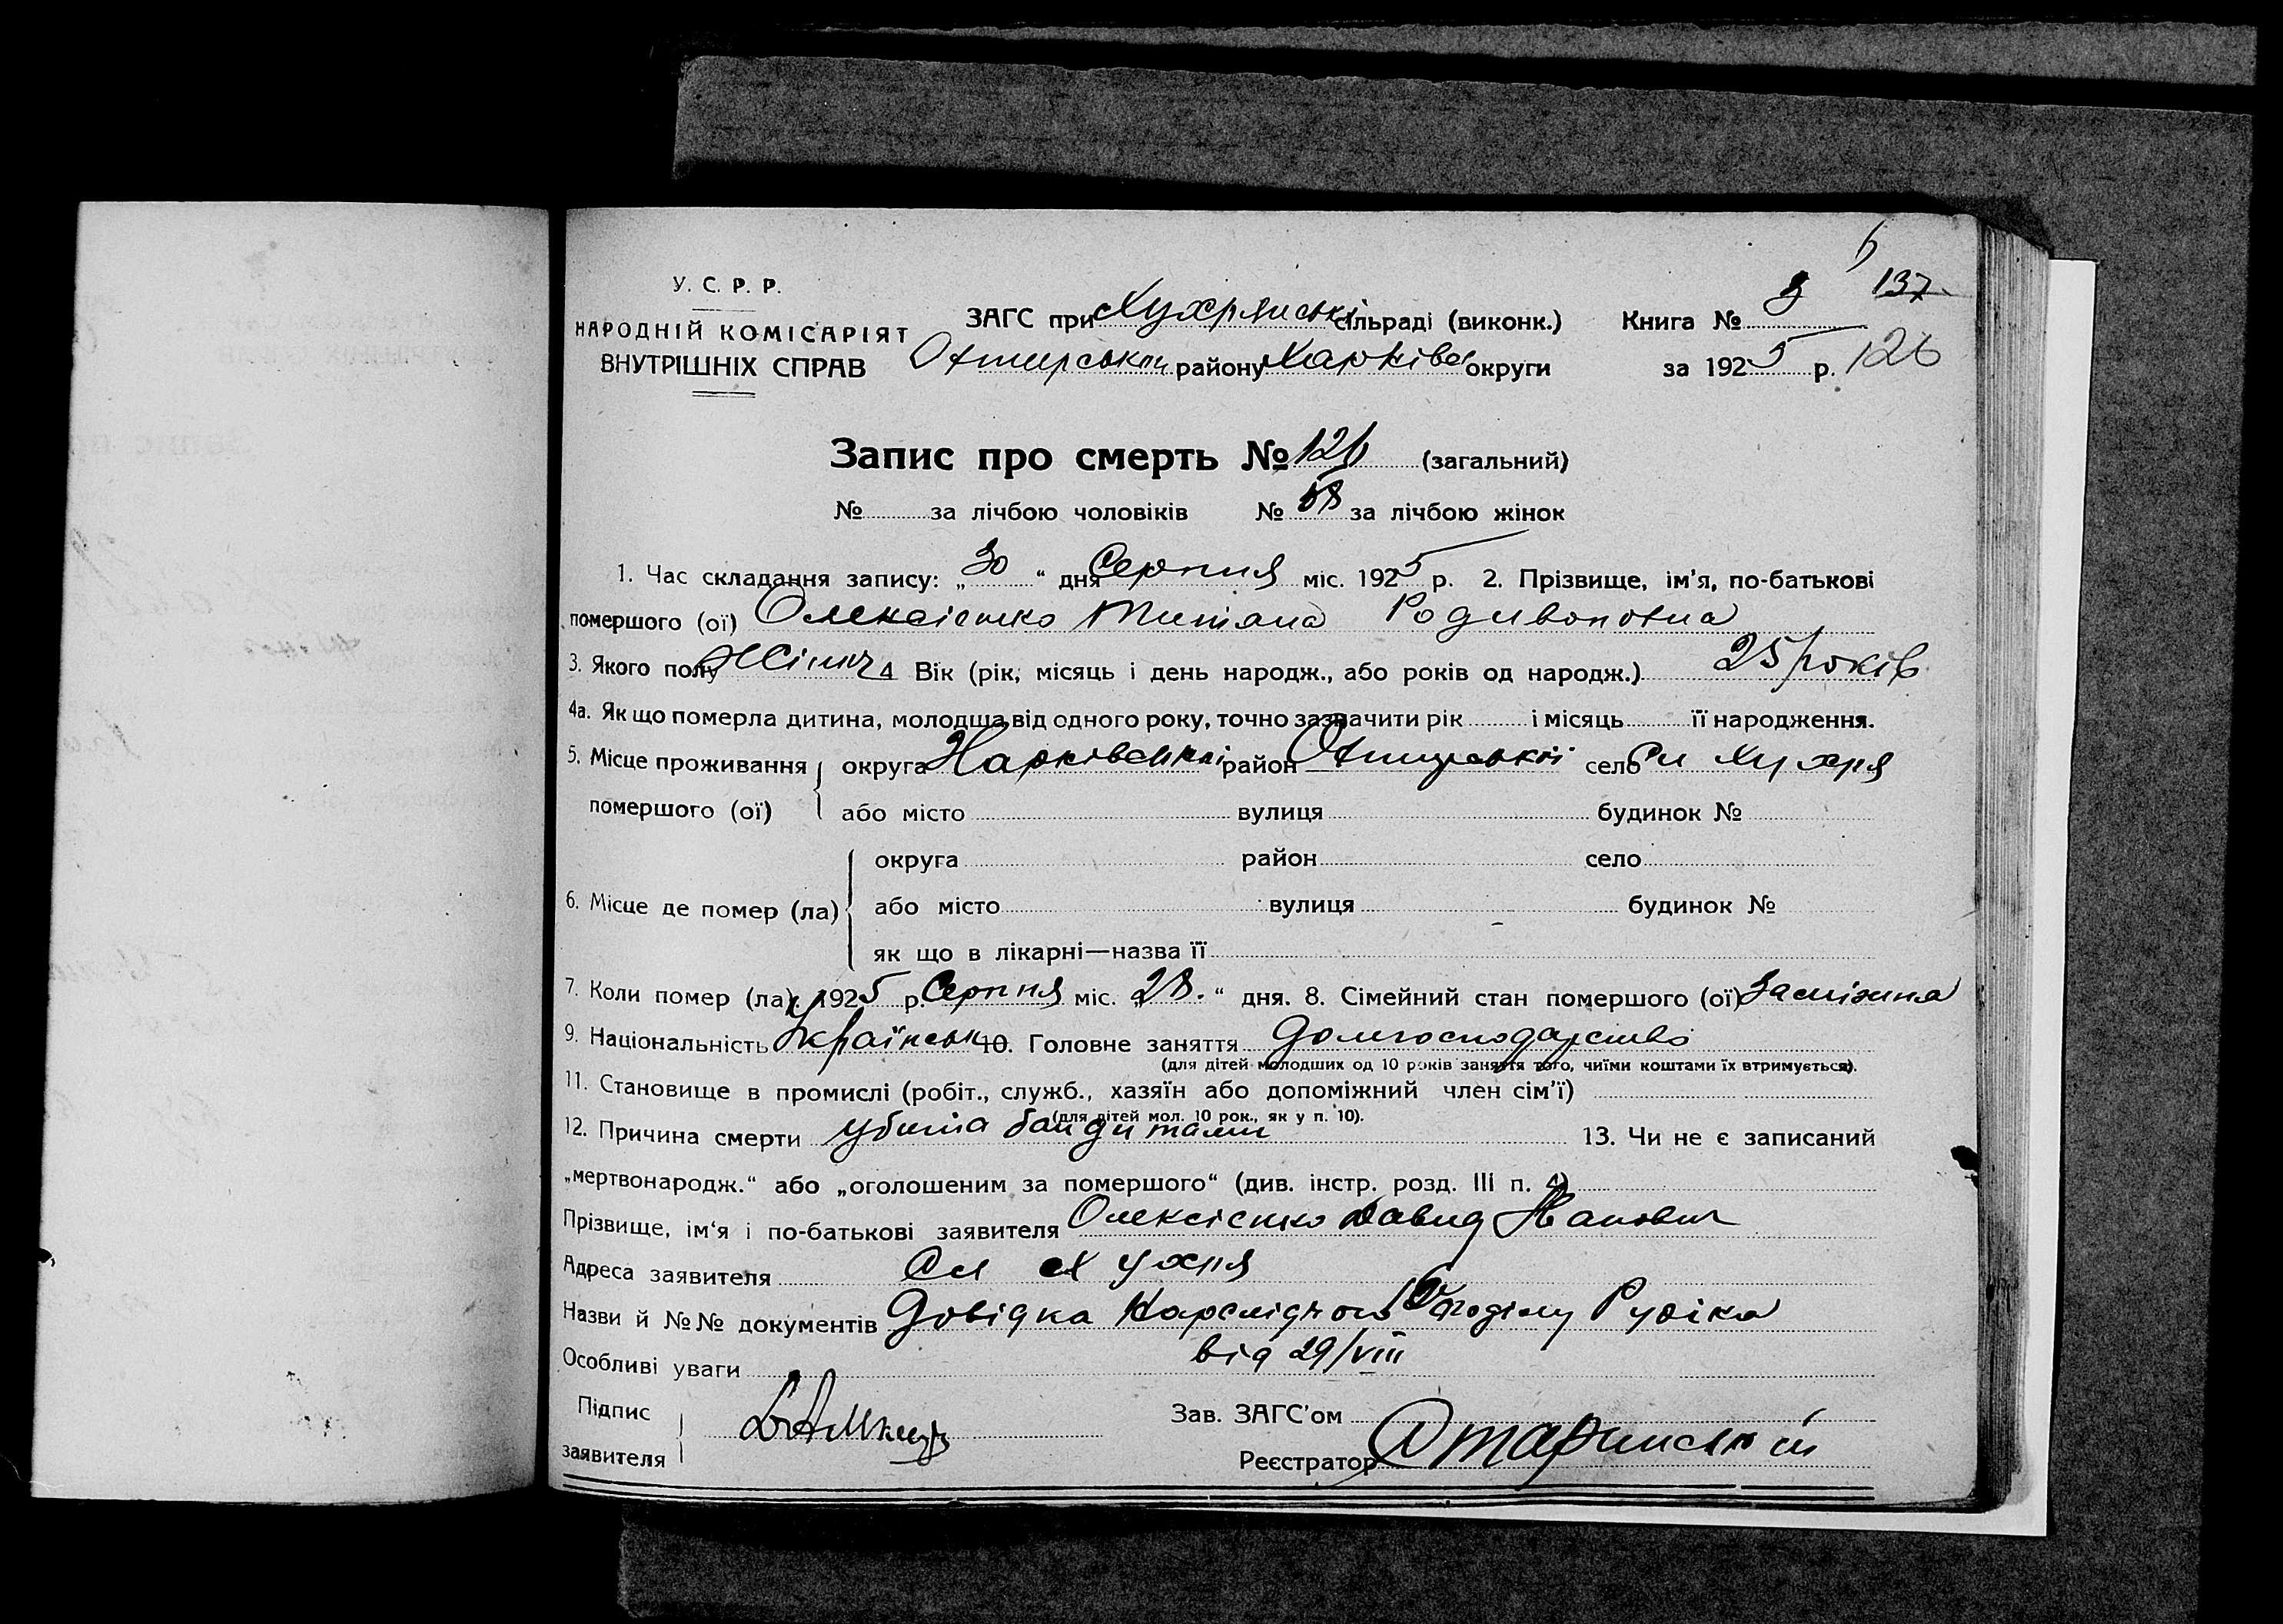 137
У. С. Р. Р.
НАРОДНІЙ КОМІСАРІЯТ
ВНУТРІШНІХ СПРАВ
ЗАГС при Хухрянські сільраді (виконк.) Книга № 3
Охтирськ району Харківс округи за 1925 р. 126
Запис про смерть № 126 (загальний)
№ за лічбою чоловіків № 58 за лічбою жінок
1. Час складання запису: „30“ дня Серпня міс. 1925 р. 2. Прізвище, ім'я, по-батькові
помершого (ої) Олексієнко Титяна Родивоновна
3. Якого полу Жіноч 4 Вік (рік, місяць і день народж., або років од народж.) 25 років
4а. Як що померла дитина, молодша від одного року, точно зазначити рік і місяць її народження.
5. Місце проживання округа Харківській район Охтирській село Сл Хухря
помершого (ої) або місто вулиця будинок №
округа район село
6. Місце де помер (ла) або місто вулиця будинок №
як що в лікарні—назва її
7. Коли помер (ла) 1925 р. Серпня міс. „28.“ дня. 8. Сімейний стан помершого (ої) Заміжня
9. Національність Українськ 10. Головне заняття Домгосподарство
(для дітей молодших од 10 років заняття того, чиїми коштами їх втримується).
11. Становище в промислі (робіт., служб., хазяїн або допоміжний член сім'ї)
(для дітей мол. 10 рок., як у п. 10).
12. Причина смерти убита бандитами 13. Чи не є записаний
„мертвонародж.“ або „оголошеним за помершого“ (див. інстр. розд. III п. 4)
Прізвище, ім'я і по-батькові заявителя Олексієнко Давид Іванович
Адреса заявителя Сл Хухря
Назви й №№ документів Довідка Нарслідчого
від 29/VIII
Особливі уваги
Підпис
заявителя
Зав. ЗАГС'ом
Реєстратор